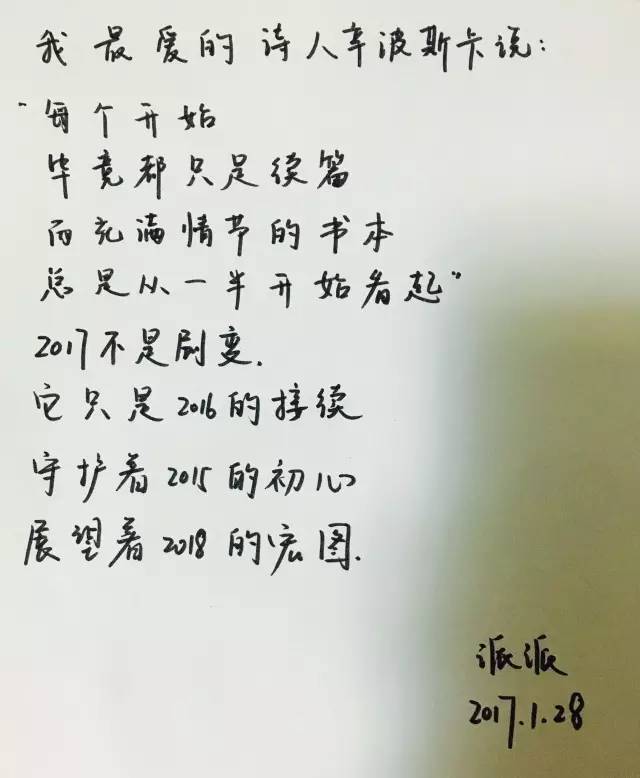 我最爱的诗人辛波斯卡说:
"每个开始
毕竟都只是续篇
而充满情节的书本
总是从一半开始看起"
2017不是剧变.
它只是2016的接续
守护着2015的初心
展望着2018的宏图.
派派
2017.1.28